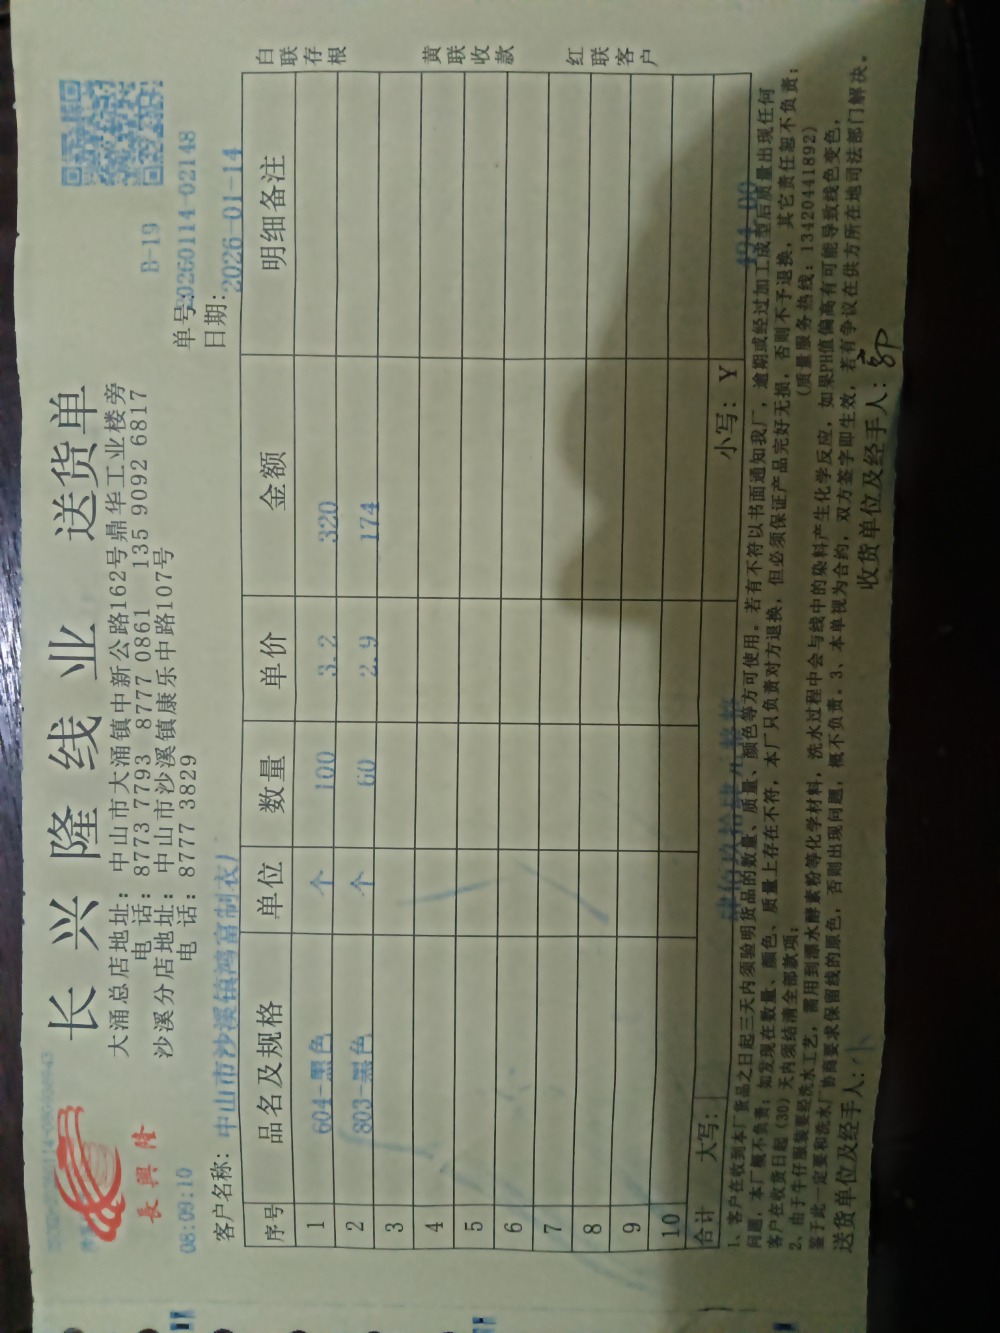 長興隆
长兴隆线业 送货单
大涌总店地址：中山市大涌镇中新公路162号鼎华工业楼旁
电 话：8773 7793 8777 0861 135 9092 6817
沙溪分店地址：中山市沙溪镇康乐中路107号
电 话：8777 3829
B-19
08:09:10
单号:20260114-02148
日期: 2026-01-14
客户名称: 中山市沙溪镇鸿富制衣
序号 品名及规格 单位 数量 单价 金额 明细备注
1 604-黑色 个 100 3.2 320
2 803-黑色 个 60 2.9 174
3
4
5
6
7
8
9
10
合计 大写: 肆佰玖拾肆元整 小写: Y 494.00
白联存根
黄联收款
红联客户
1、客户在收到本厂货品之日起三天内须验明货品的数量、质量、颜色等方可使用。若有不符以书面通知我厂，逾期或经过加工成型后质量出现任何
问题，本厂概不负责；如发现在数量、颜色、质量上存在不符，本厂只负责对方退换，但必须保证产品完好无损，否则不予退换，其它责任恕不负责；
客户在收货日起(30)天内须结清全部款项； (质量服务热线: 13420441892)
2、由于牛仔服装要经洗水工艺，需用到漂水酵素粉等化学材料，洗水过程中会与线中的染料产生化学反应，如果PH值偏高有可能导致线色变色，
鉴于此一定要和洗水厂协商要求保留线的原色，否则出现问题，概不负责。3、本单视为合约，双方签字即生效，若有争议在供方所在地司法部门解决。
送货单位及经手人: 收货单位及经手人: